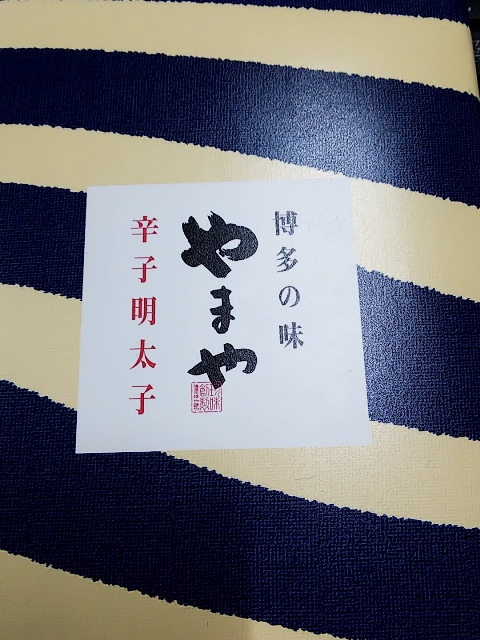 博多の味
やまや
辛子明太子